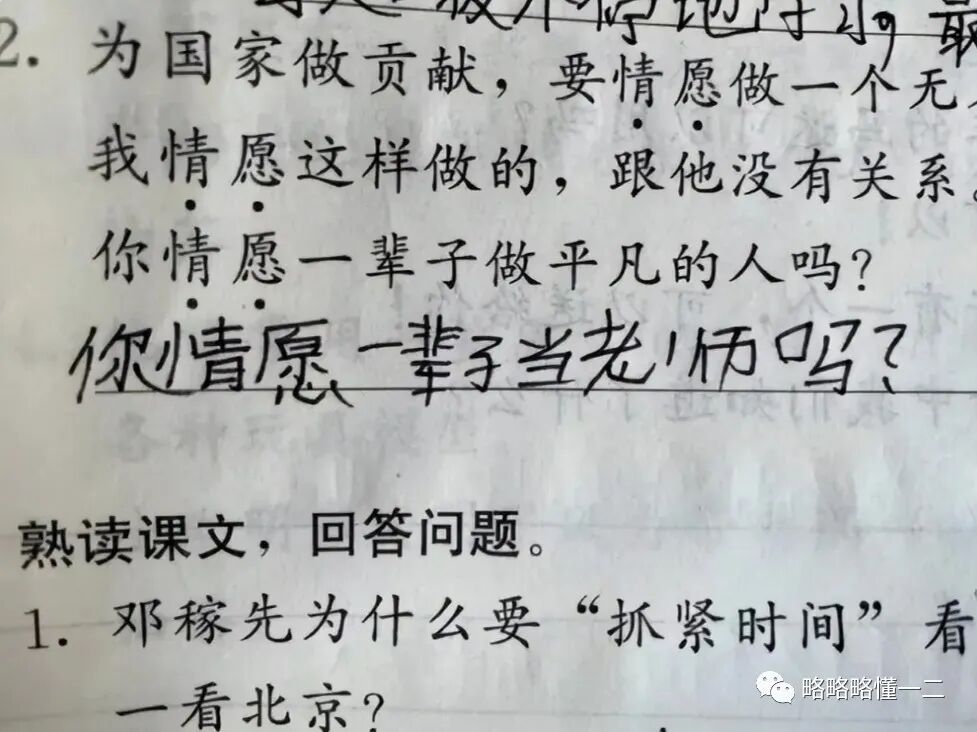 2. 为国家做贡献，要情愿做一个无
我情愿这样做的，跟他没有关系。
你情愿一辈子做平凡的人吗？
你情愿一辈子当老师吗？
熟读课文，回答问题。
1. 邓稼先为什么要“抓紧时间”看
一看北京？
略略略懂一二